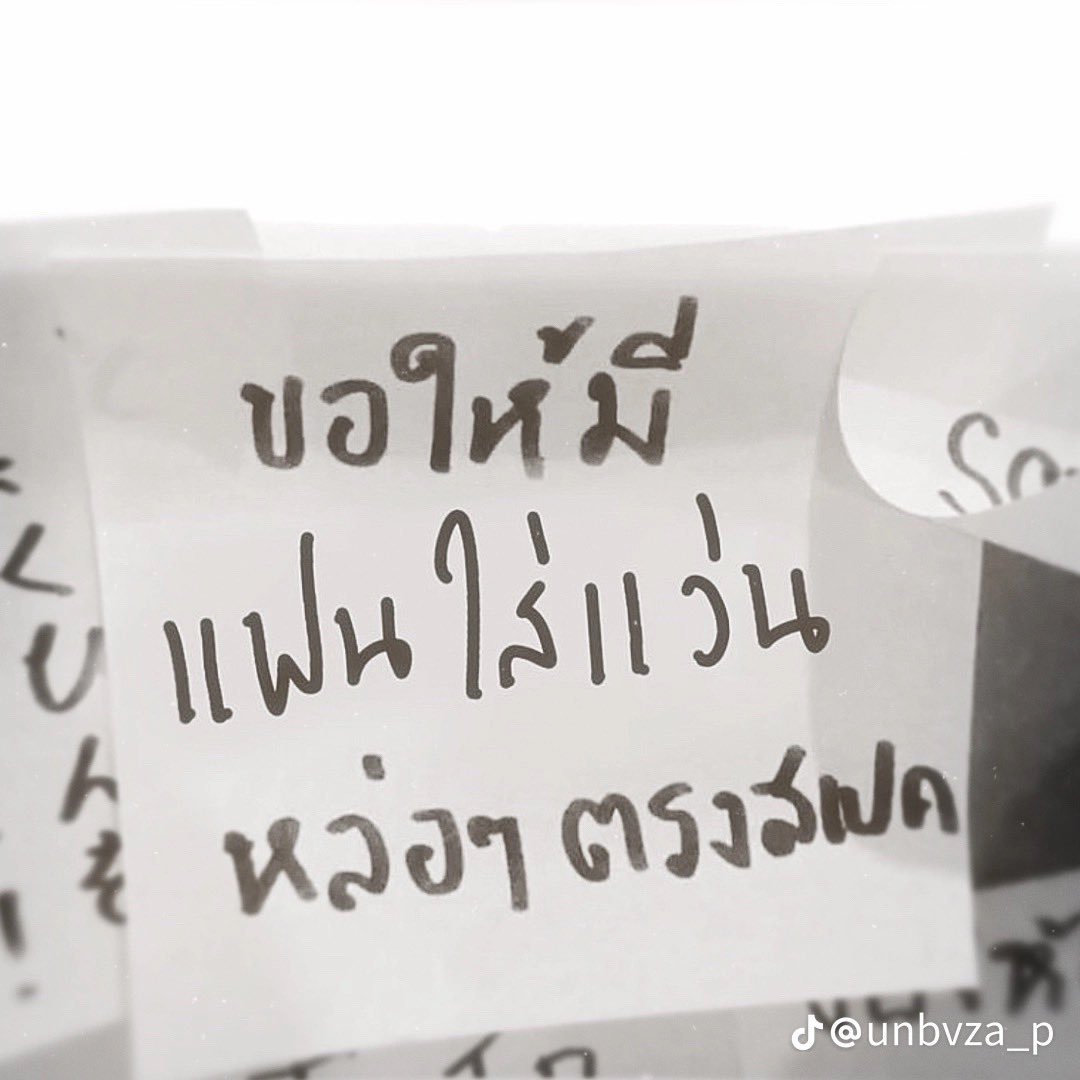 ขอให้มี
แฟนใส่แว่น
หล่อๆ ตรงสเปค
@unbvza_p